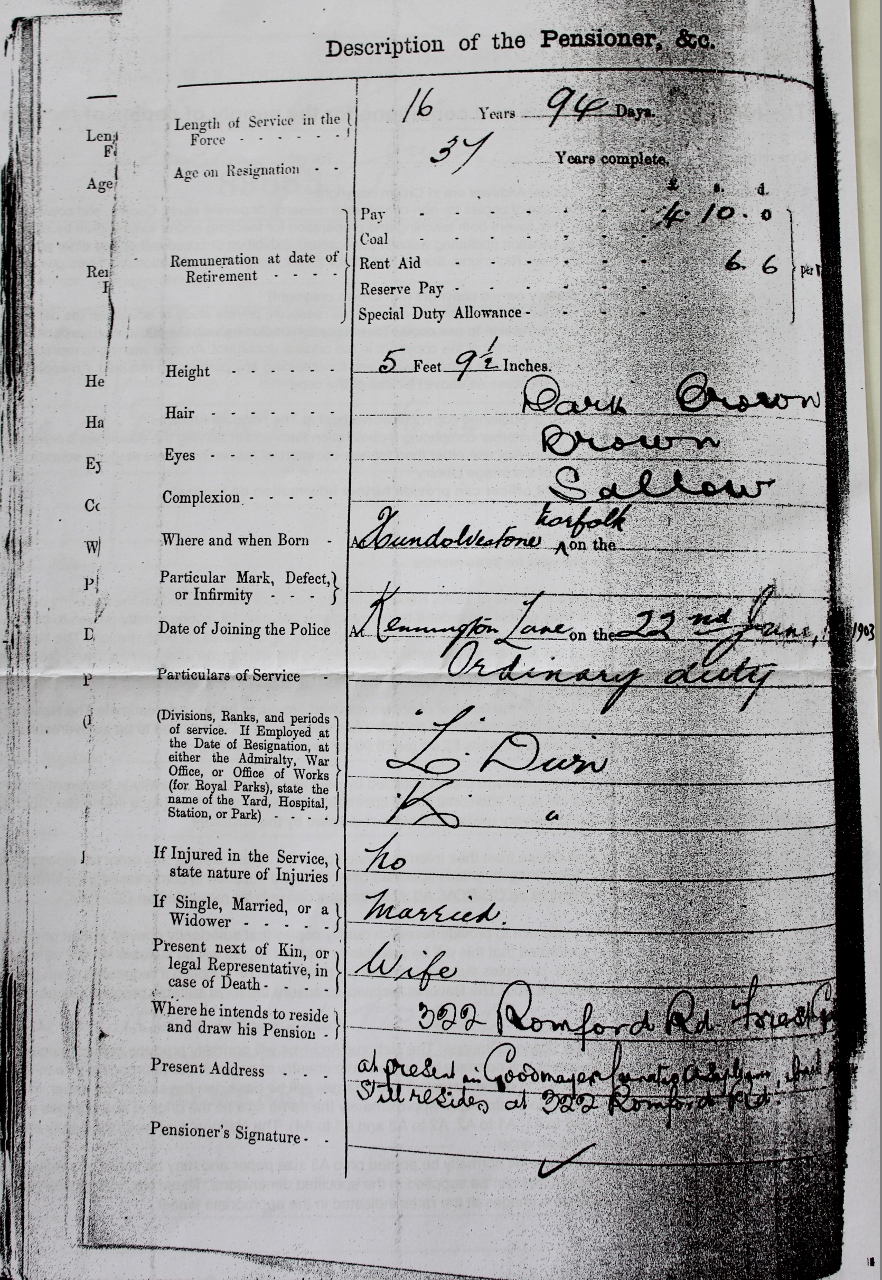 Description of the Pensioner, &c.
Length of Service in the Force - - - - - - 16 Years 94 Days.
Age on Resignation - - 37 Years complete.
£ s. d.
Remuneration at date of Retirement - - - -
Pay - - - - - - 4. 10. 0
Coal - - - - - -
Rent Aid - - - - - - 6. 6
Reserve Pay - - - - - -
Special Duty Allowance - - - -
per
Height - - - - - - 5 Feet 9½ Inches.
Hair - - - - - - Dark Brown
Eyes - - - - - - Brown
Complexion - - - - - Sallow
Norfolk
Where and when Born - At on the
Particular Mark, Defect, or Infirmity - - -
Date of Joining the Police At Kennington Lane on the 22nd June, 1903
Particulars of Service - Ordinary duty
(Divisions, Ranks, and periods
of service. If Employed at
the Date of Resignation, at
either the Admiralty, War
Office, or Office of Works
(for Royal Parks), state the
name of the Yard, Hospital,
Station, or Park) - - - -
"L" Divn
"K" "
If Injured in the Service, state nature of Injuries No
If Single, Married, or a Widower - - - - - Married.
Present next of Kin, or legal Representative, in case of Death - - - - Wife
Where he intends to reside and draw his Pension - 322 Romford Rd Forest
Present Address - - - at present in Goodmayes Lunatic Asylum,
Still resides at 322 Romford Rd.
Pensioner's Signature - -